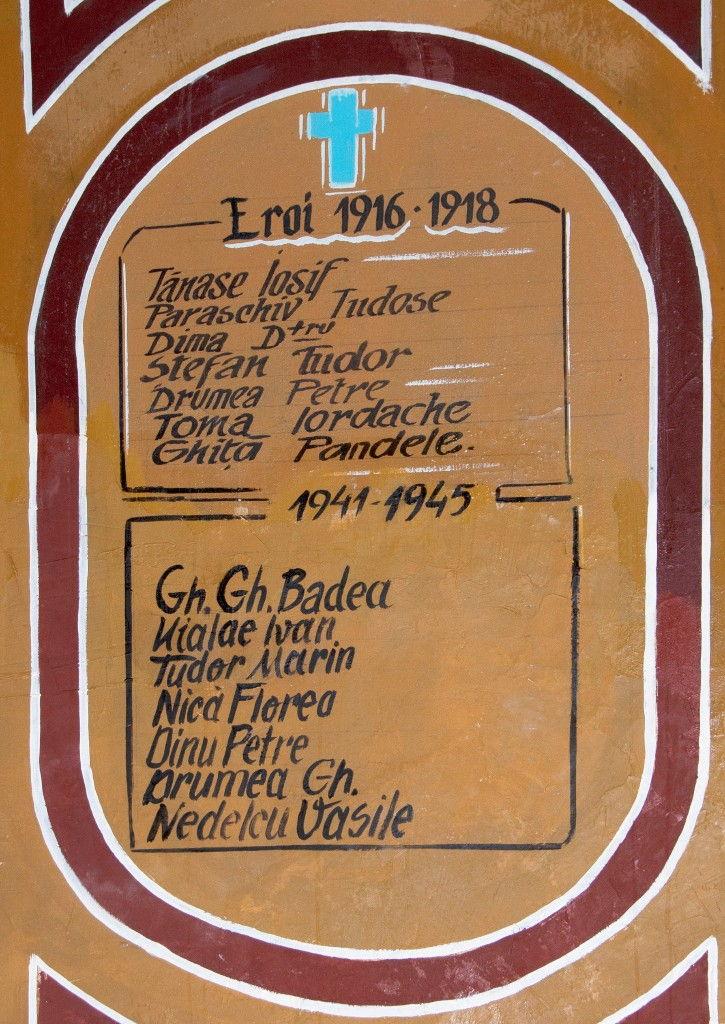 Eroi 1916-1918
Tănase Iosif
Paraschiv Tudose
Dima Dtru
Ștefan Tudor
Drumea Petre
Toma Iordache
Ghiță Pandele.
1941-1945
Gh. Gh. Badea
Ivan
Tudor Marin
Nica Florea
Dinu Petre
Drumea Gh.
Nedelcu Vasile